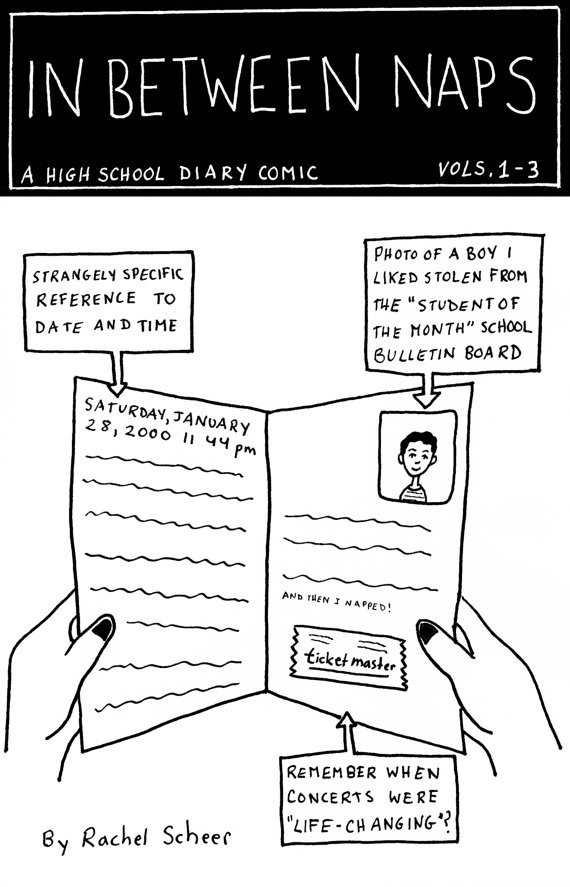 IN BETWEEN NAPS
A HIGH SCHOOL DIARY COMIC
VOLS. 1-3
STRANGELY SPECIFIC
REFERENCE TO
DATE AND TIME
PHOTO OF A BOY I
LIKED STOLEN FROM
THE "STUDENT OF
THE MONTH" SCHOOL
BULLETIN BOARD
SATURDAY, JANUARY
28, 2000 11 44 pm
AND THEN I NAPPED!
ticketmaster
REMEMBER WHEN
CONCERTS WERE
"LIFE-CHANGING"?
By Rachel Scheer